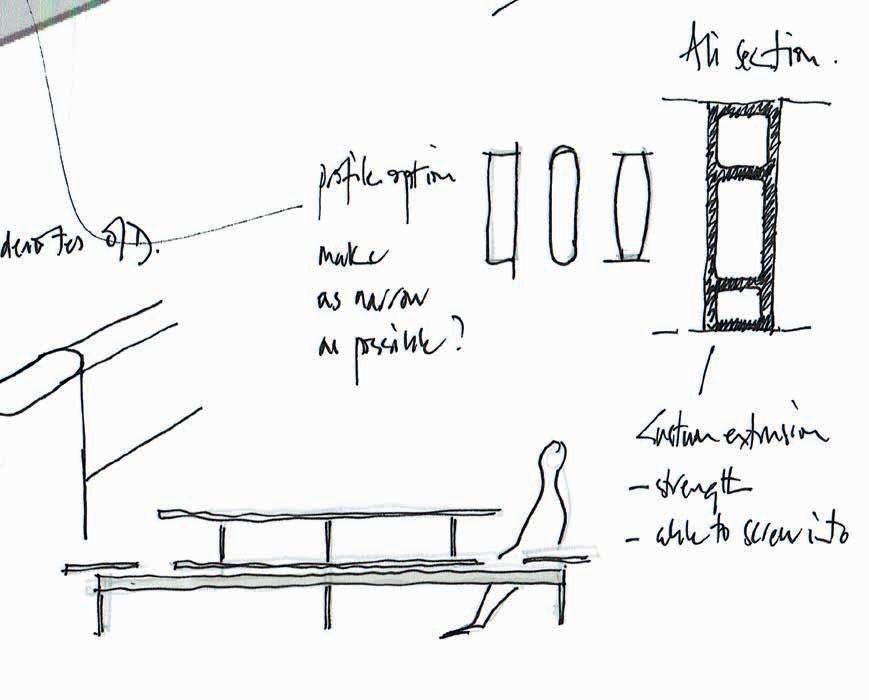 Ali section.
profile option
make
as narrow
as possible?
denotes
Custom extrusion
- strength
- able to screw into